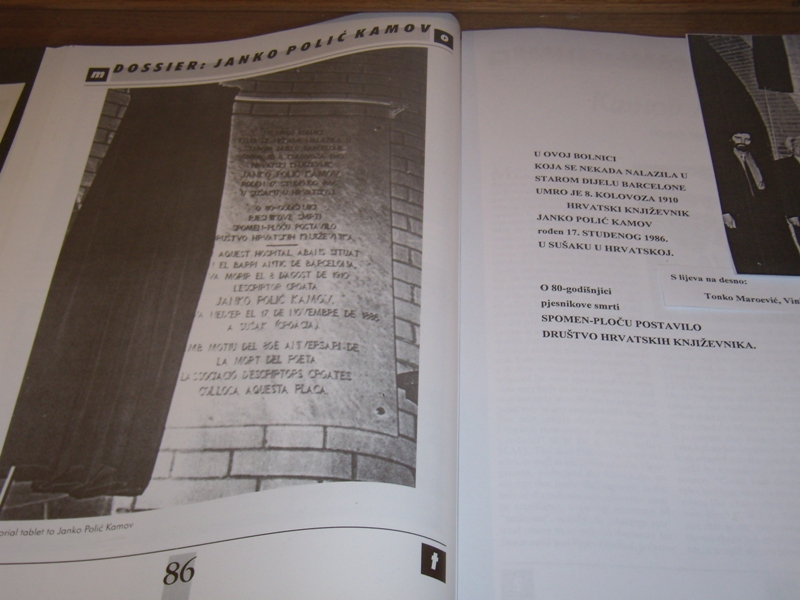 m DOSSIER: JANKO POLIĆ KAMOV o
JANKO POLIĆ KAMOV
O 80-GODIŠNJICI
PJESNIKOVE SMRTI
SPOMEN-PLOČU POSTAVILO
DRUŠTVO HRVATSKIH KNJIŽEVNIKA
AQUEST HOSPITAL, ABANS SITUAT
EL BARRI ANTIC DE BARCELONA,
VA MORIR EL 8 D'AGOST DE 1910
L'ESCRIPTOR CROATA
JANKO POLIĆ KAMOV,
EL 17 DE NOVEMBRE DE 1886
A SUŠAK (CROÀCIA).
AMB MOTIU DEL 80È ANIVERSARI DE
LA MORT DEL POETA
L'ASSOCIACIÓ D'ESCRIPTORS CROATES
COL·LOCA AQUESTA PLACA.
tablet to Janko Polić Kamov
86
t
U OVOJ BOLNICI
KOJA SE NEKADA NALAZILA U
STAROM DIJELU BARCELONE
UMRO JE 8. KOLOVOZA 1910
HRVATSKI KNJIŽEVNIK
JANKO POLIĆ KAMOV
rođen 17. STUDENOG 1986.
U SUŠAKU U HRVATSKOJ.
O 80-godišnjici
pjesnikove smrti
SPOMEN-PLOČU POSTAVILO
DRUŠTVO HRVATSKIH KNJIŽEVNIKA.
S lijeva na desno:
Tonko Maroević, Vin